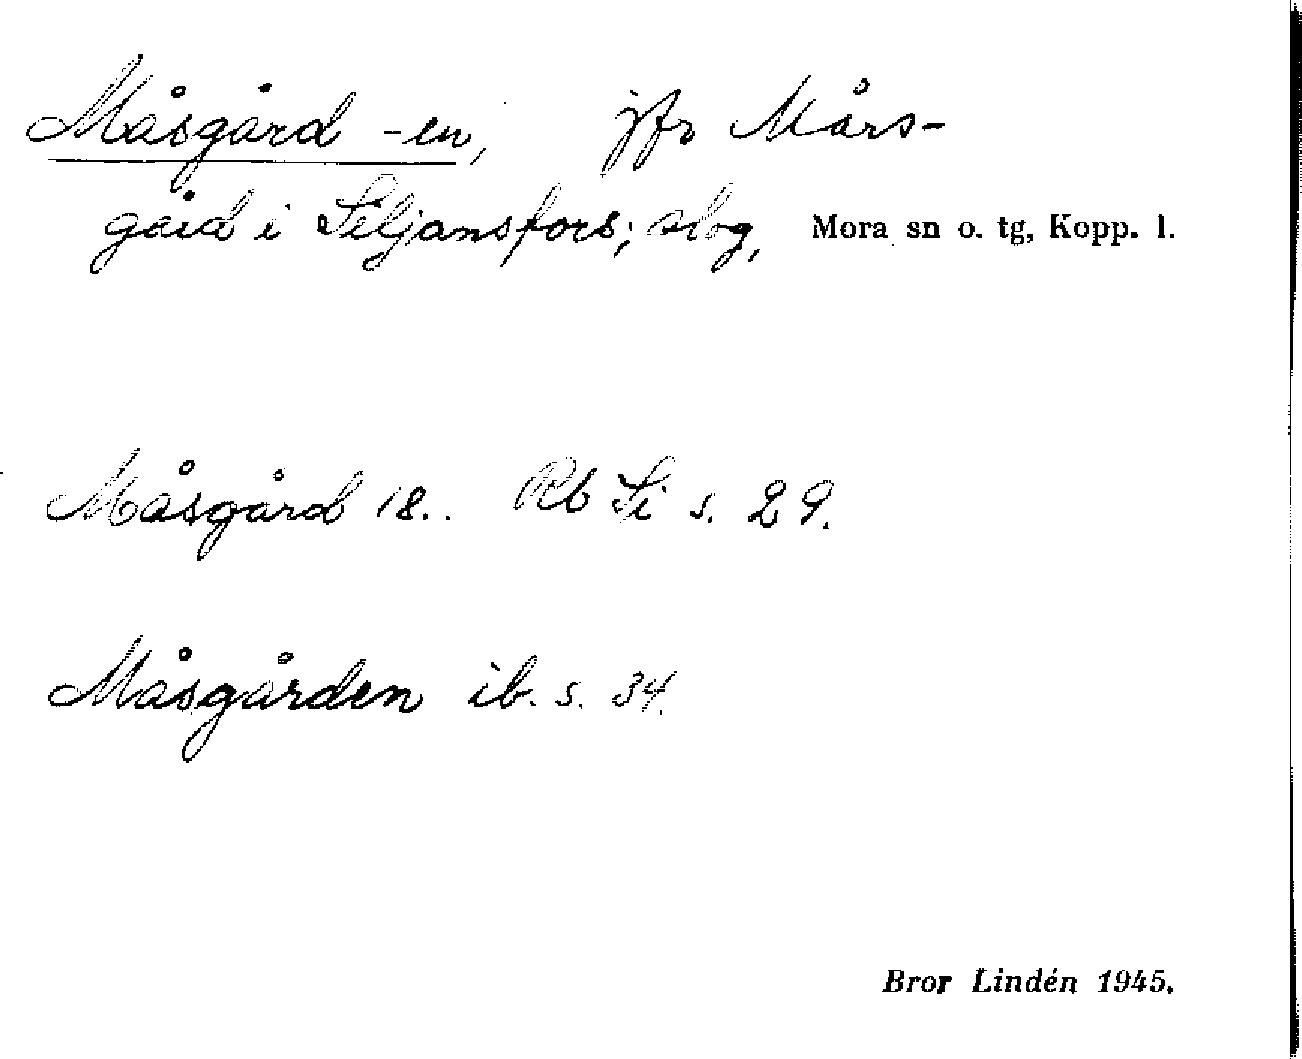 Måsgård -en, jfr Mårs-
gård i Siljansfors; slog, Mora sn o. tg, Kopp. l.
Måsgård 18.. Rb Si s. 29.
Måsgården ib. s. 34.
Bror Lindén 1945.